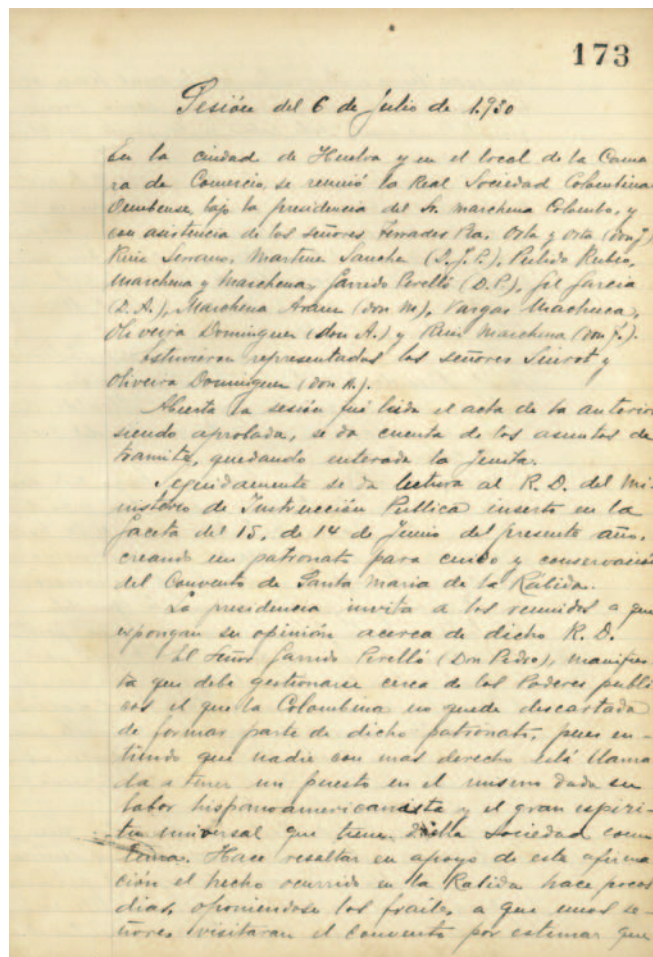 173
Sesión del 6 de Julio de 1.930
En la ciudad de Huelva y en el local de la Cama
ra de Comercio, se reunió la Real Sociedad Colombina
Onubense, bajo la presidencia del Sr. Marchena Colombo, y
con asistencia de los señores Terrades Pla, Orta y Orta (Don J)
Ruiz Serrano, Martinez Sanchez (D.J.P.), Pulido Rubio,
Marchena y Marchena, Garrido Perelló (D.P.), Gil Garcia
(D. A.), Marchena Aram (don M), Vargas Machuca,
Oliveira Dominguez (don A.) y Ruiz Marchena (don J.).
Estuvieron representados los señores Siurot y
Oliveira Dominguez (don A.).
Abierta la sesión fué leida el acta de la anterior
siendo aprobada, se da cuenta de los asuntos de
tramite, quedando enterada la Junta.
Seguidamente se da lectura al R. D. del Mi-
nisterio de Instrucción Publica inserto en la
Gaceta del 15, de 14 de Junio del presente año,
creando un patronato para cuido y conservación
del Convento de Santa Maria de la Rabida.
La presidencia invita a los reunidos a que
expongan su opinión acerca de dicho R. D.
El Señor Garrido Perelló (Don Pedro), manifies
ta que debe gestionarse cerca de los Poderes publi
cos el que la Colombina no quede descartada
de formar parte de dicho patronato, pues en-
tiendo que nadie con mas derecho está llama
da a tener un puesto en el mismo dada su
labor hispanoamericanista y el gran espiri-
tu universal que tiene dicha Sociedad
Hace resaltar en apoyo de esta afirma
ción el hecho ocurrido en la Rabida hace pocos
dias, oponiendose los frailes a que unos se-
ñores visitaran el Convento por estimar que